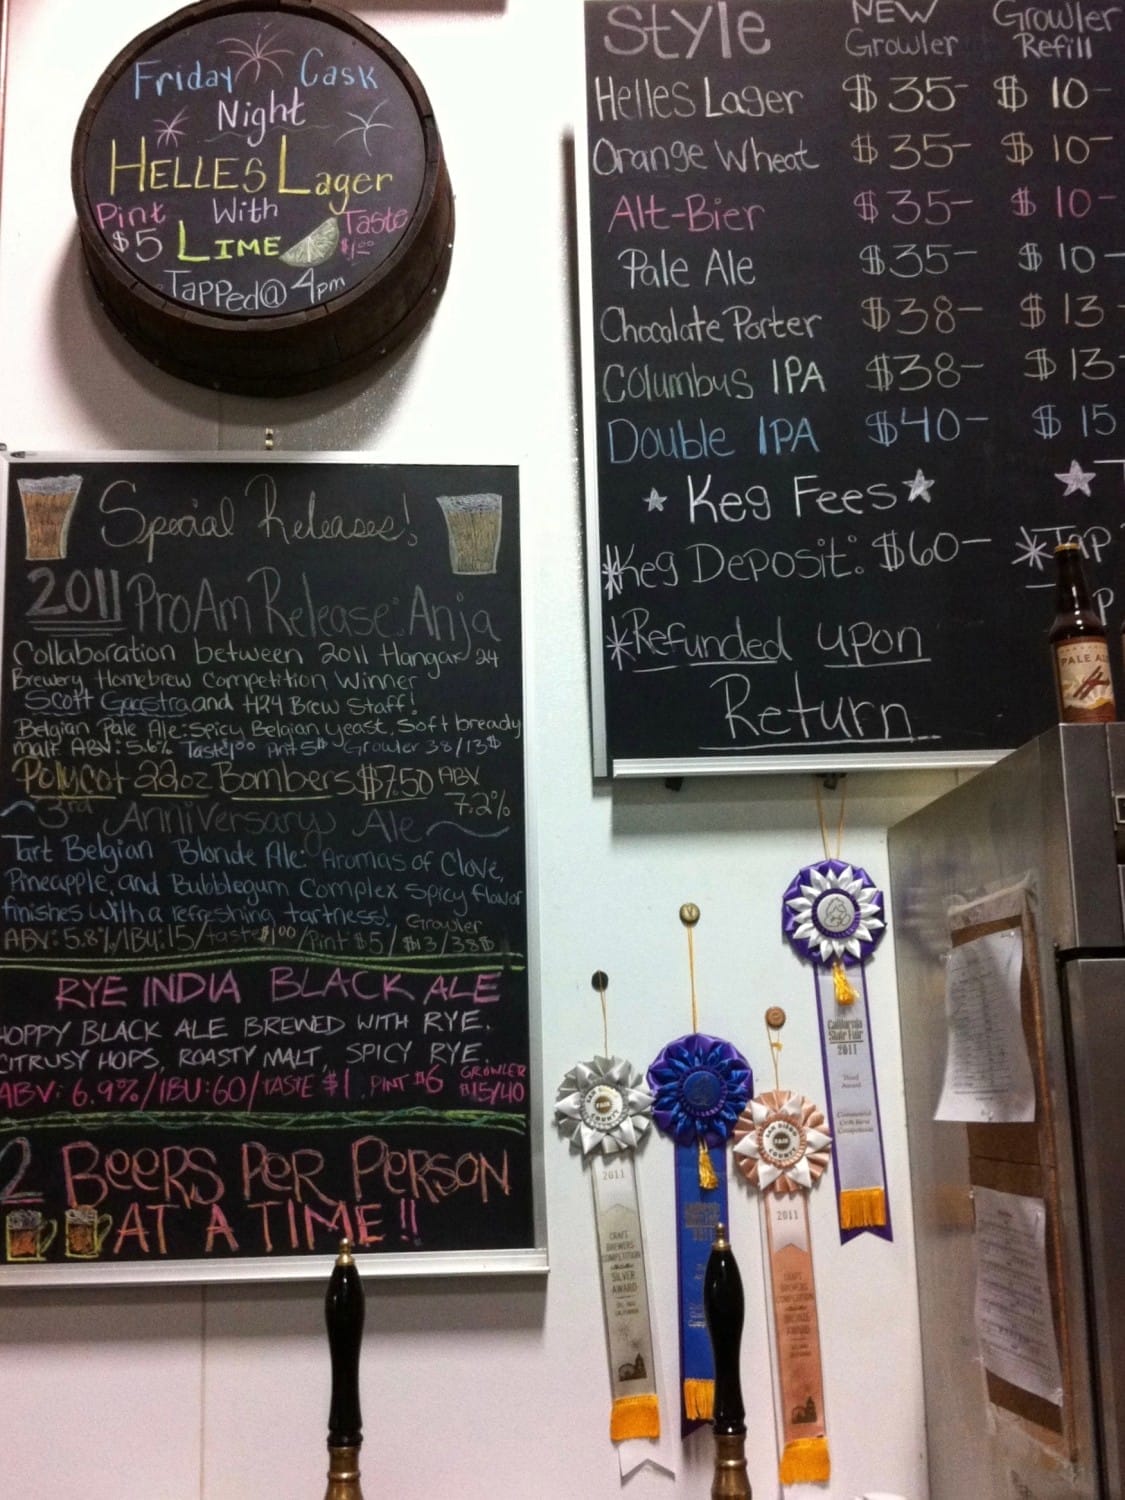 Friday Cask
Night
HELLES Lager
Pint With Taste
$5 LIME $1.00
Tapped@ 4pm
Style NEW Growler Growler Refill
Helles Lager $35- $10-
Orange Wheat $35- $10-
Alt-Bier $35- $10-
Pale Ale $35- $10-
Chocolate Porter $38- $13-
Columbus IPA $38- $13-
Double IPA $40- $15
Keg Fees
*Keg Deposit: $60- *Tap
*Refunded upon
Return
Special Releases!
2011 ProAm Release: Anja
Collaboration between 2011 Hangar 24
Brewery Homebrew Competition Winner
Scott and H24 Brew Staff!
Belgian Pale Ale: Spicy Belgian yeast, Soft bready
malt ABV: 5.6% Taste 1.00 Pint 5$ Growler 38/13$
Polycot 22oz Bombers $7.50 ABV
7.2%
3rd Anniversary Ale
Tart Belgian Blonde Ale: Aromas of Clove,
Pineapple, and Bubblegum Complex Spicy flavor
finishes with a refreshing tartness! Growler
ABV: 5.8%/IBU:15/taste $1.00/Pint $5/ $13/38$
RYE INDIA BLACK ALE
HOPPY BLACK ALE BREWED WITH RYE.
CITRUSY HOPS, ROASTY MALT, SPICY RYE.
ABV: 6.9%/IBU:60/TASTE $1. PINT $6 GROWLER $15/40
2 BEERS PER PERSON
AT A TIME!!
PALE ALE
California
State Fair
2011
Third
Award
Commercial
Craft Beer
Competition
FAIR
COUNTY
2011
CRAFT
BREWERS
COMPETITION
SILVER
AWARD
2011
SAN DIEGO
FAIR
COUNTY
2011
CRAFT
BREWERS
COMPETITION
BRONZE
AWARD